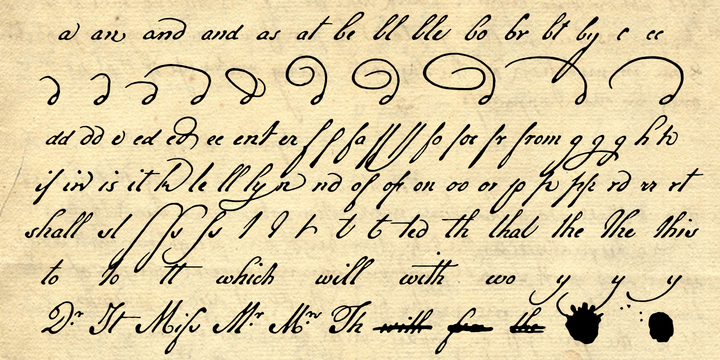 a an and and as at be bl ble bo br bt by c ee
d d d d d d d d d
dd dd e ed ed ee ent er f f fa ff ff fo for fr from g g g h h
if in is it k le ll ly n nd of of on oo or p p pp rd rr rt
shall sl ſ ſs ſs t t t t t ted th that the The this
to to tt which will with wo y y y
Dr It Miſs Mr Mrs Th with for the